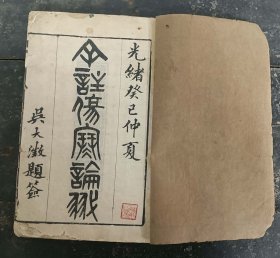 光緒癸巳仲夏
余註傷寒論翼
吳大澂題簽